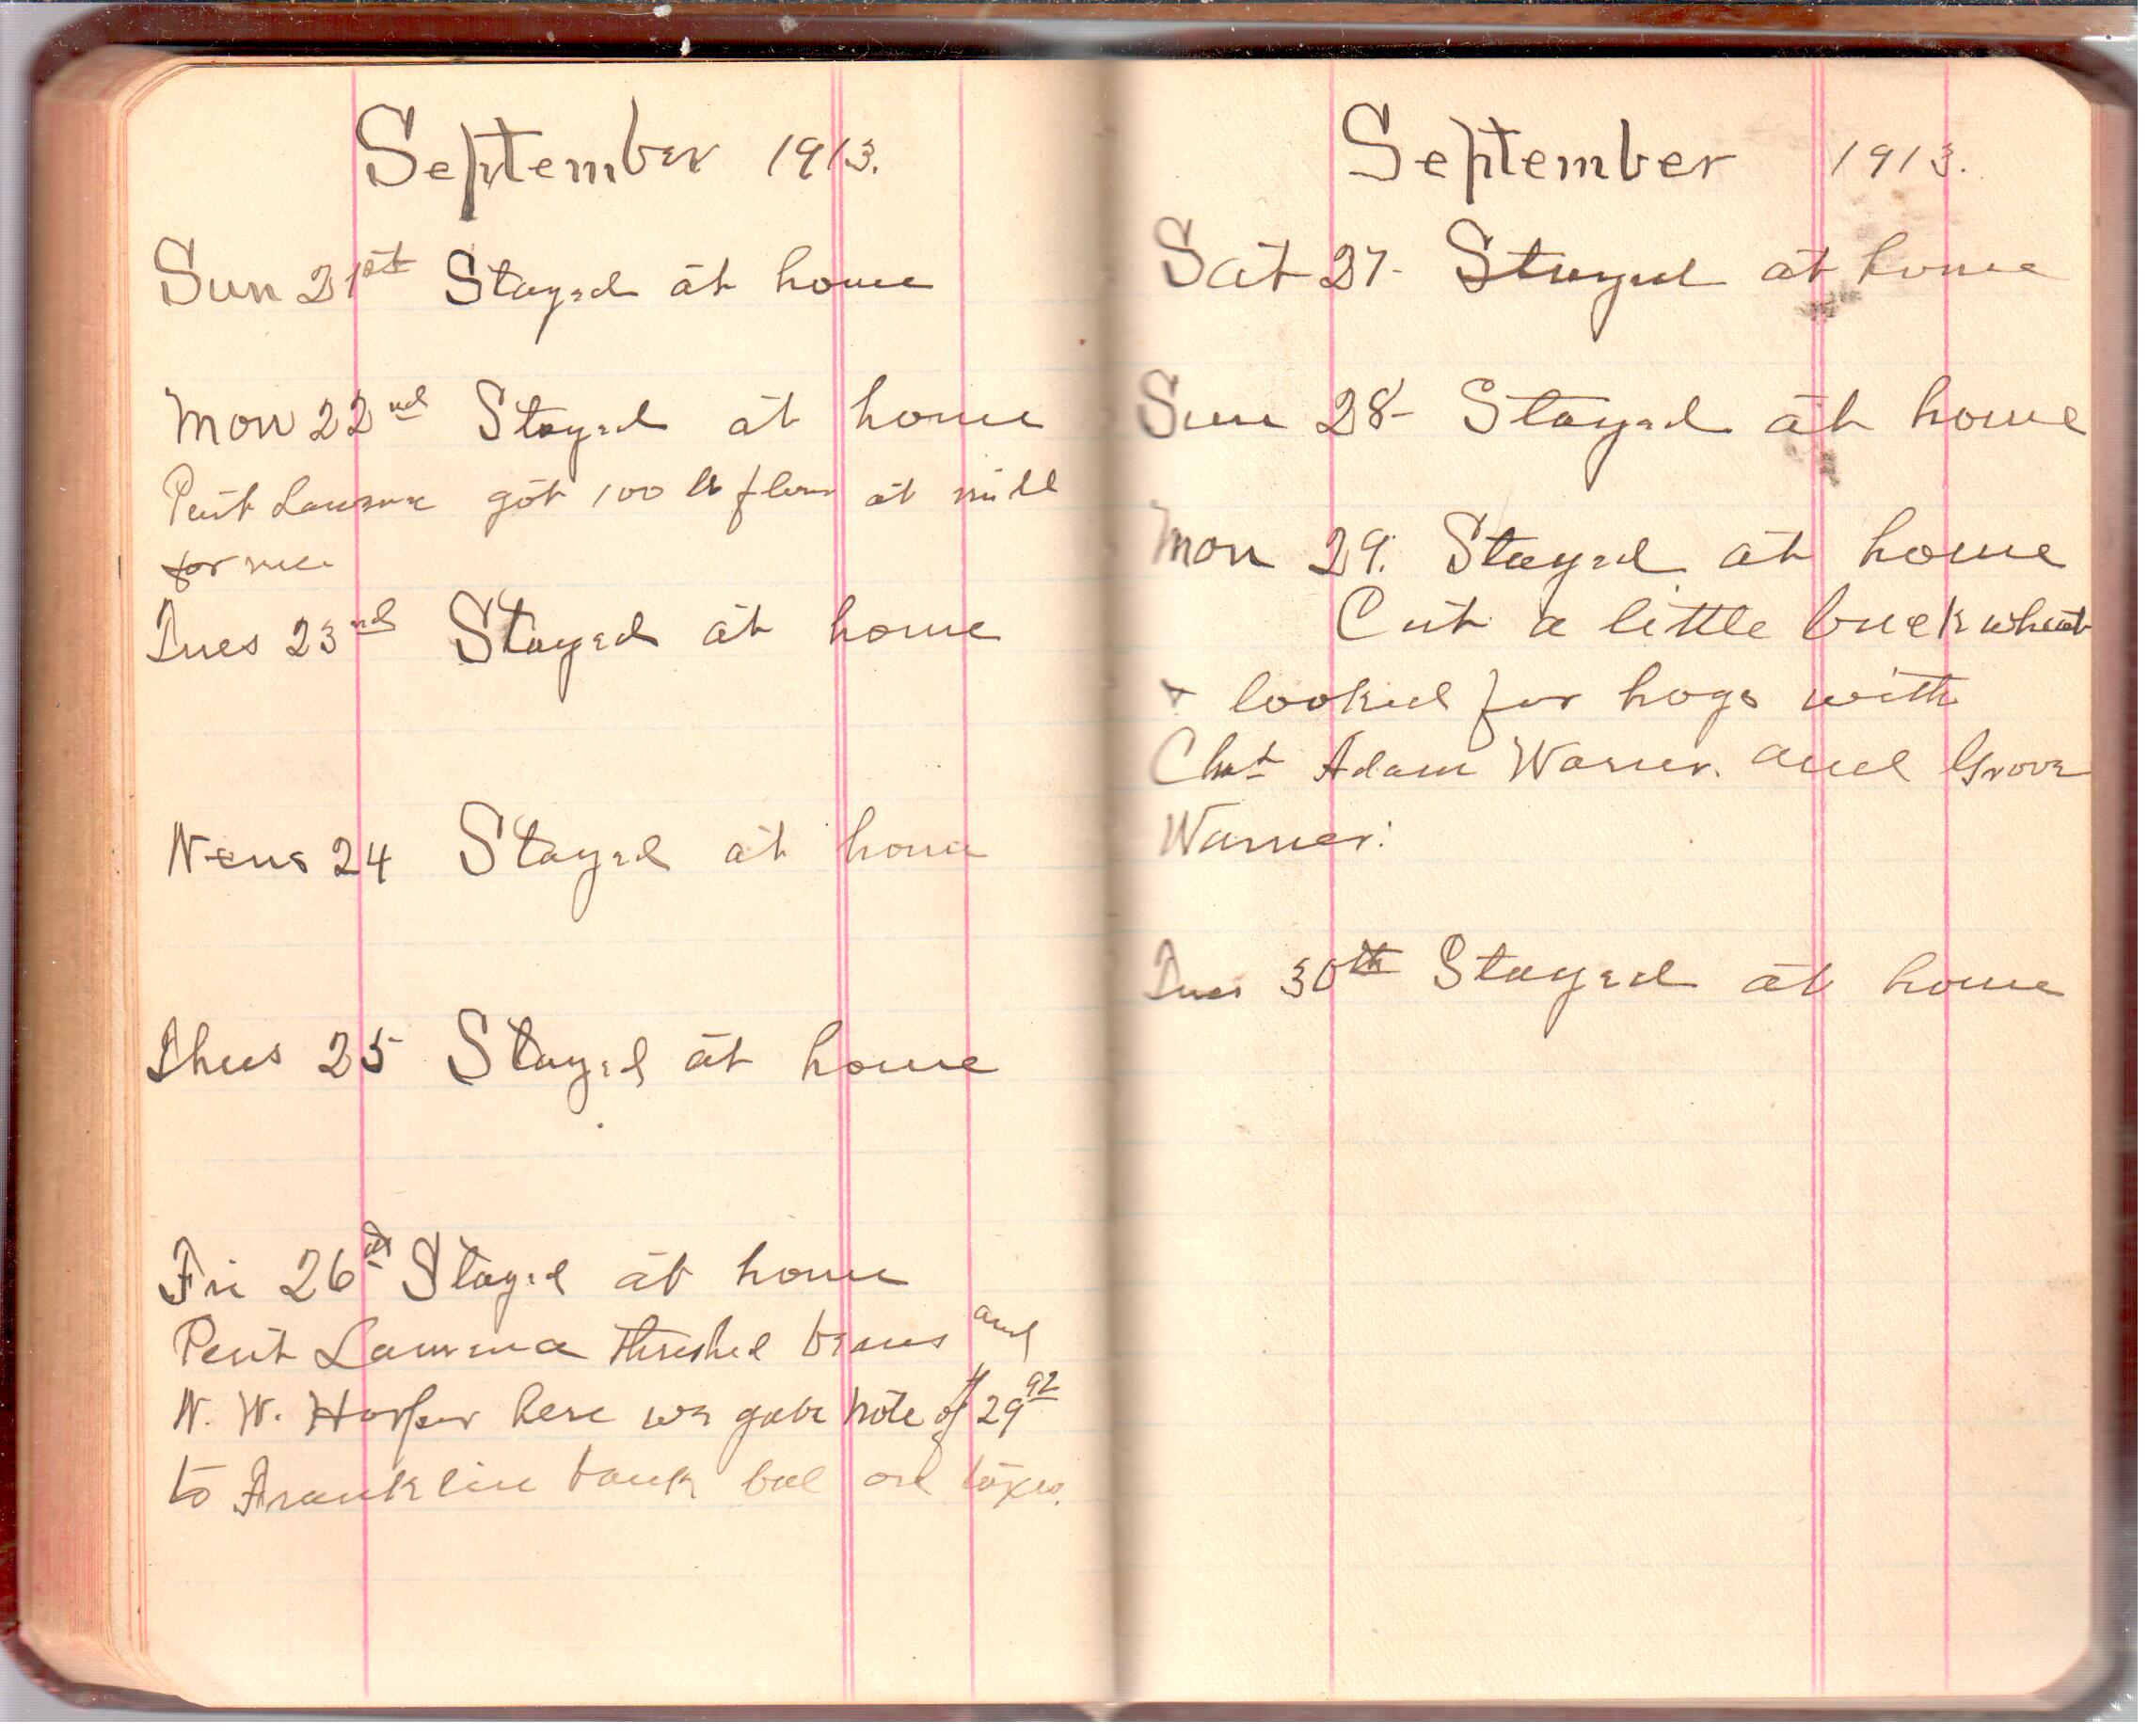 September 1913.
Sun 21st Stayed at home
Mon 22nd Stayed at home
got 100 lb flour at mill
for me.
Tues 23rd Stayed at home
Wens 24 Stayed at home
Thus 25 Stayed at home
Fri 26th Stayed at home
threshed beans and
W. W. Harper here we gave note of $29 92
to Franklin bank bal on taxes.
September 1913.
Sat 27- Stayed at home
Sun 28- Stayed at home
Mon 29. Stayed at home
Cut a little buckwheat
+ looked for hogs with
Adam Warner. and Grove
Warner.
Tues 30th Stayed at home